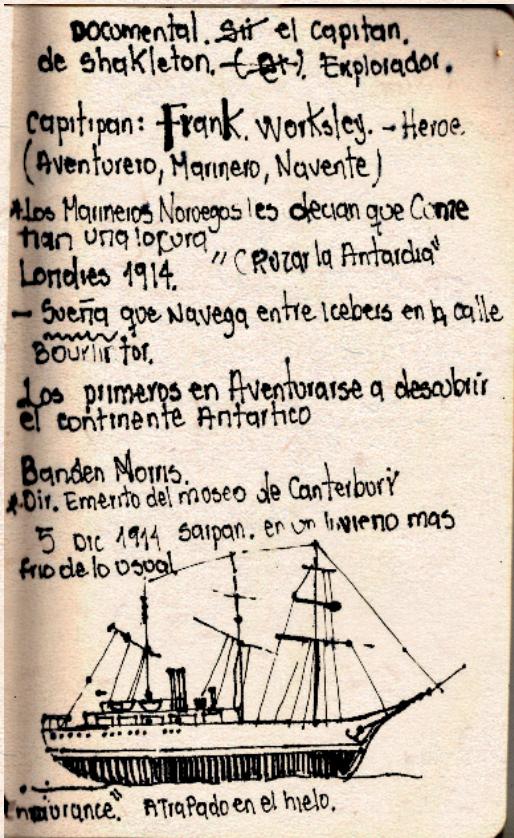 Documental. Sir el capitan.
de shakleton. Explorador.
Capitipan: Frank. Worksley. - Heroe.
(Aventurero, Marinero, Navente)
*Los Marineros Noruegos les decian que Come
tian una locura" "Cruzar la Antardia"
Londres 1914.
- Sueña que Navega entre Icebers en la calle
Los primeros en Aventurarse a descubrir
el continente Antartico
Banden Morris.
*Dir. Emerito del moseo de Canterbury
5 Dic 1914 sarpan. en un mas
frio de lo usual
Endurance." Atrapado en el hielo.